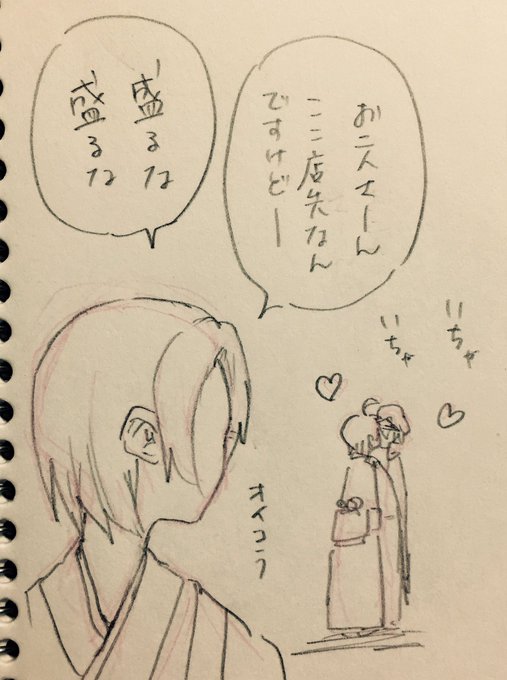 お二人さーん
ここ店先なん
ですけどー
盛るな
盛るな
いちゃ
いちゃ
オイコラ